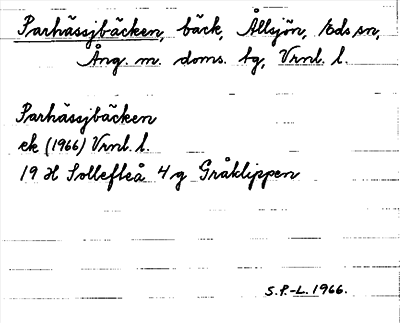 Parhässjbäcken, bäck, Ållsjön, Eds sn,
Ång. m. doms. bg, Vrnl. l.
Parhässjbäcken
ek (1966) Vrnl. l.
19 H Sollefteå 4 g Gråklippen
S.P.-L. 1966.